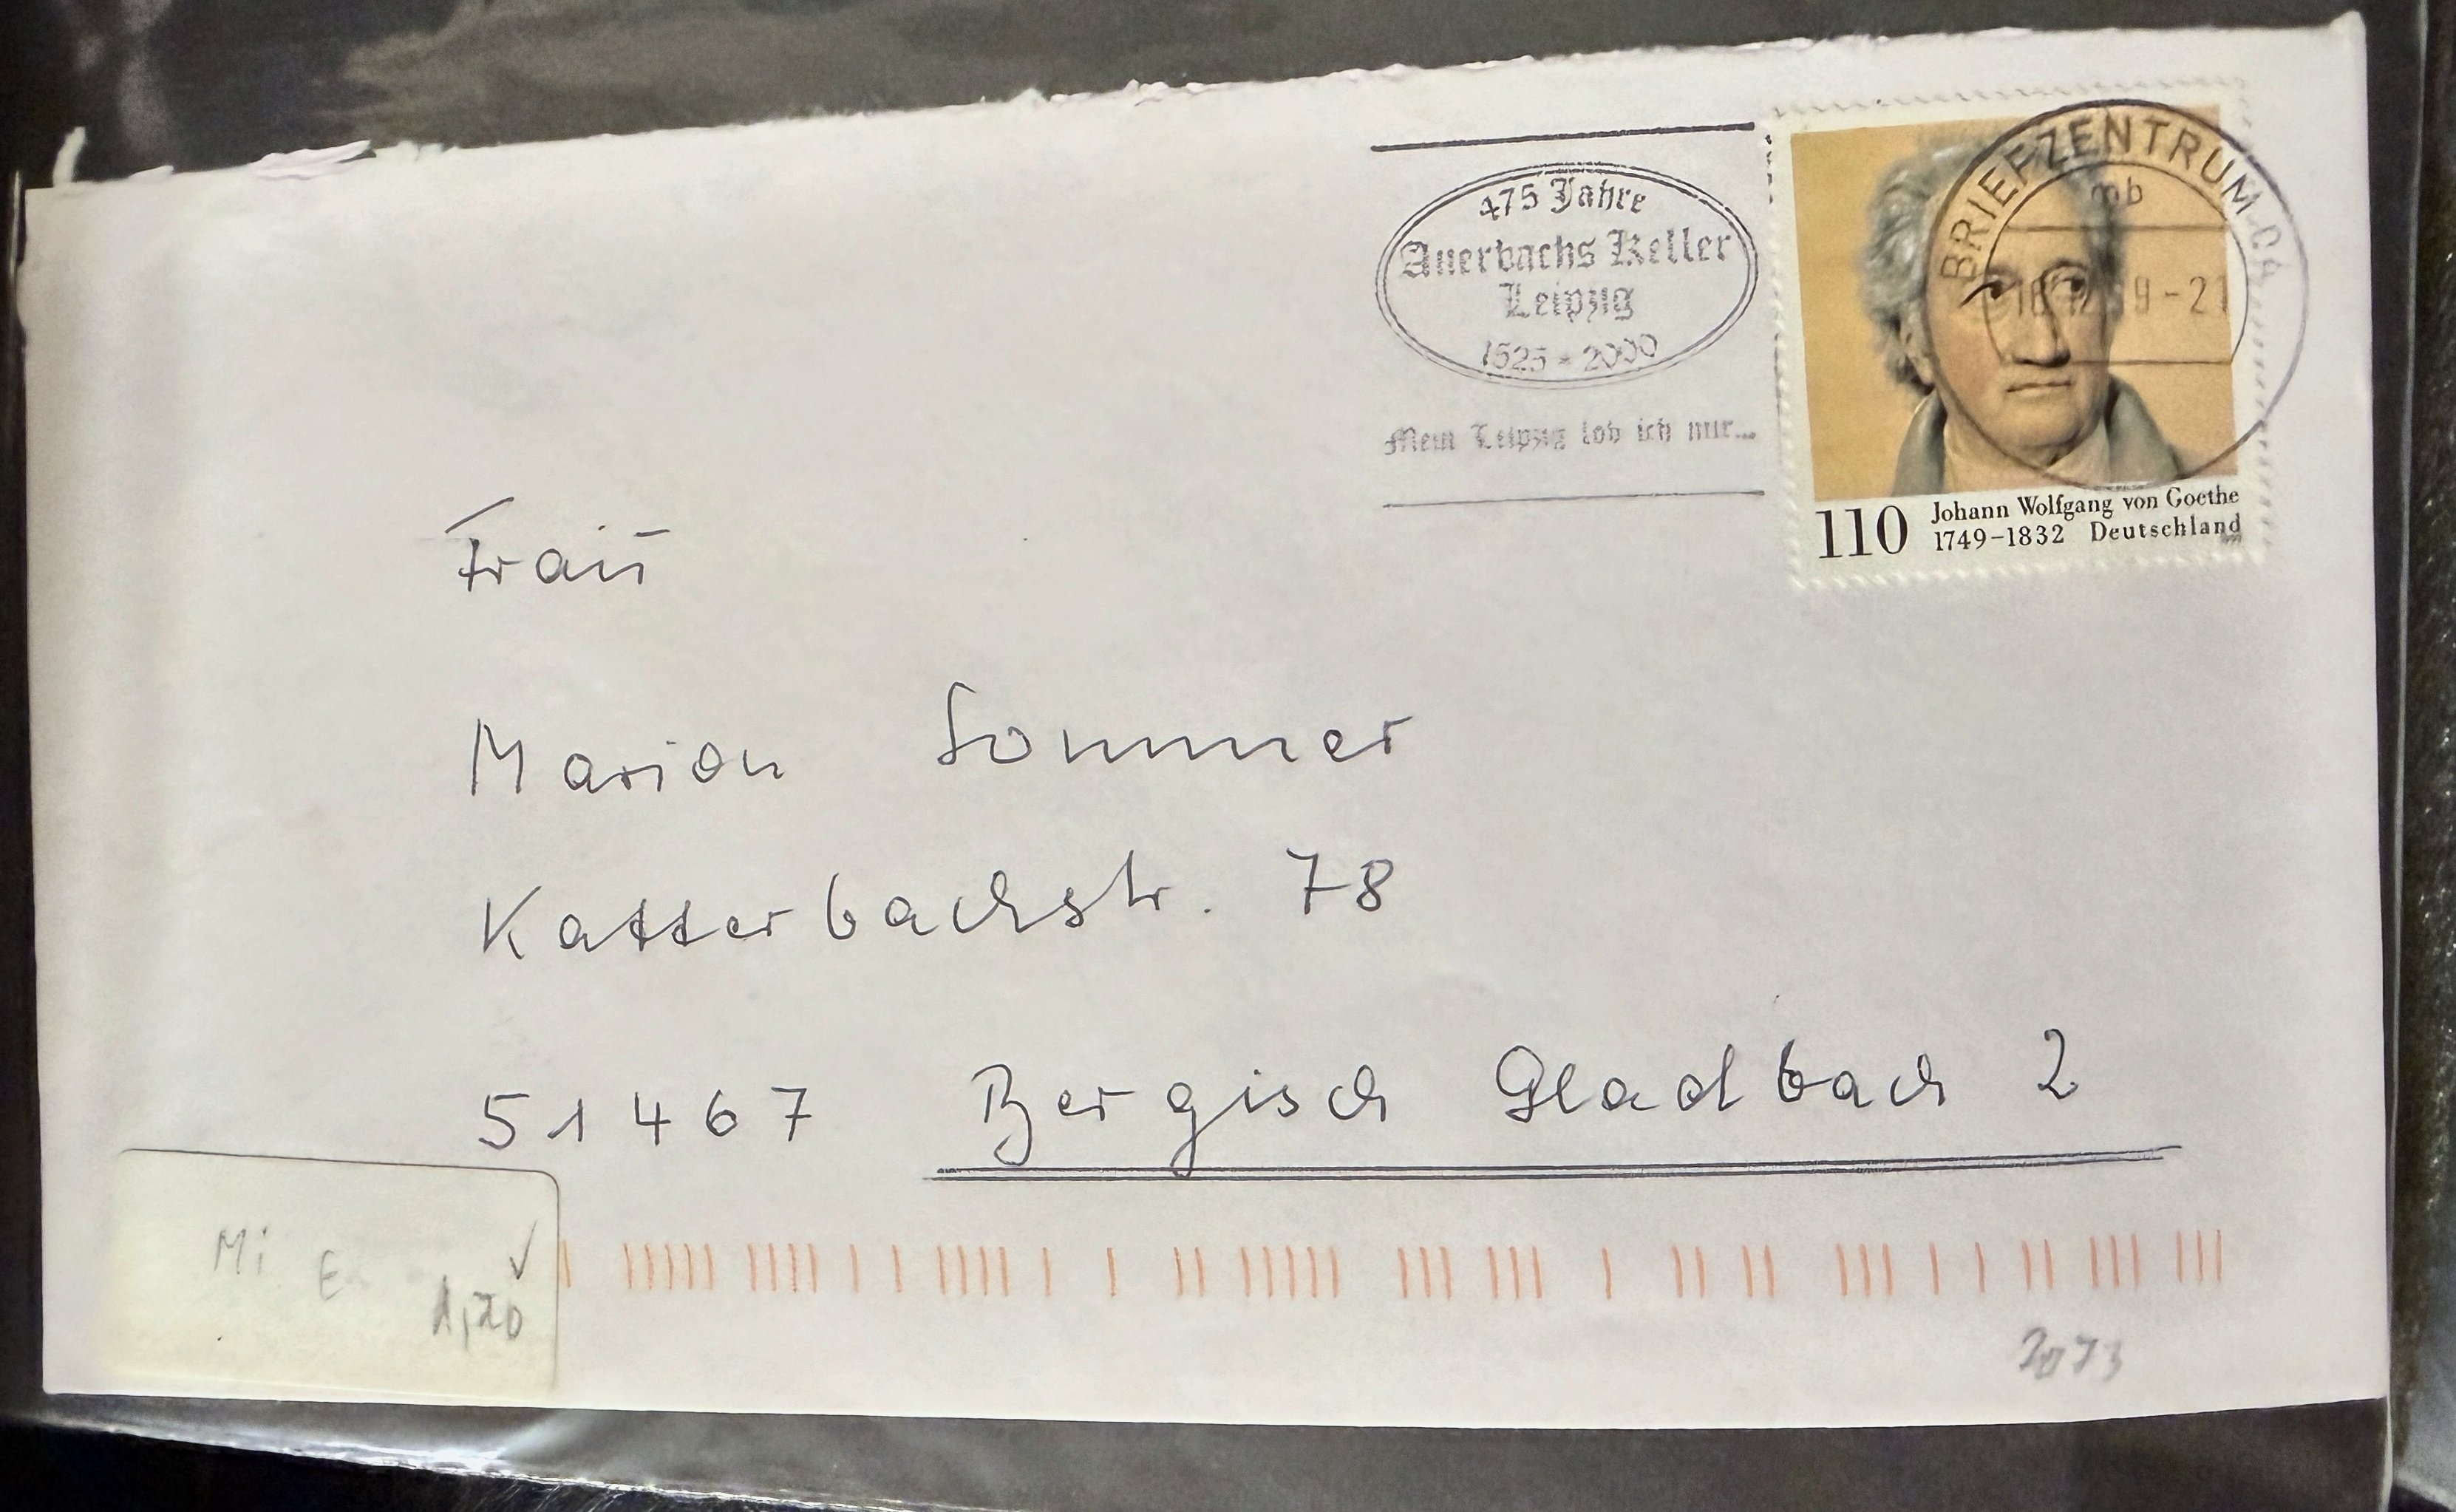 475 Jahre
Auerbachs Keller
Leipzig
1525 - 2000
Mein Leipzig lob ich mir...
BRIEFZENTRUM 04
mb
-21
110
Johann Wolfgang von Goethe
1749–1832 Deutschland
Frau
Marion Sommer
Katterbachstr. 78
51467 Bergisch Gladbach 2
Mi E